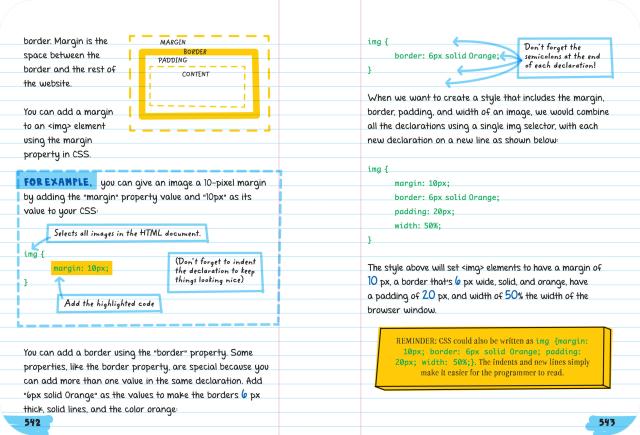 border. Margin is the
space between the
border and the rest of
the website.
You can add a margin
to an <img> element
using the margin
property in CSS.
MARGIN
BORDER
PADDING
CONTENT
FOR EXAMPLE, you can give an image a 10-pixel margin
by adding the "margin" property value and "10px" as its
value to your CSS:
Selects all images in the HTML document.
img {
margin: 10px;
}
(Don't forget to indent
the declaration to keep
things looking nice)
Add the highlighted code
You can add a border using the "border" property. Some
properties, like the border property, are special because you
can add more than one value in the same declaration. Add
"6px solid Orange" as the values to make the borders 6 px
thick, solid lines, and the color orange:
542
img {
border: 6px solid Orange;
}
Don't forget the
semicolons at the end
of each declaration!
When we want to create a style that includes the margin,
border, padding, and width of an image, we would combine
all the declarations using a single img selector, with each
new declaration on a new line as shown below:
img {
margin: 10px;
border: 6px solid Orange;
padding: 20px;
width: 50%;
}
The style above will set <img> elements to have a margin of
10 px, a border that's 6 px wide, solid, and orange, have
a padding of 20 px, and width of 50% the width of the
browser window.
REMINDER: CSS could also be written as img {margin:
10px; border: 6px solid Orange; padding:
20px; width: 50%;}. The indents and new lines simply
make it easier for the programmer to read.
543